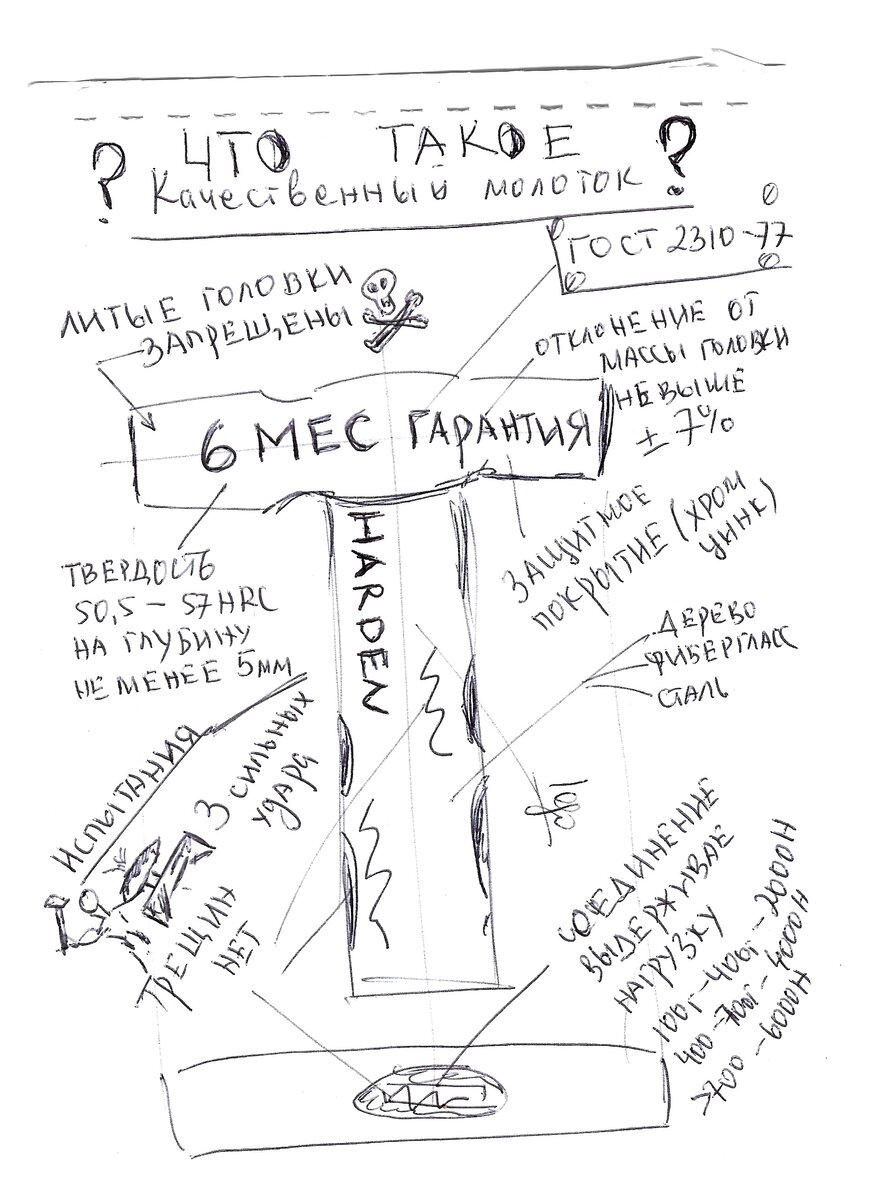 ? ЧТО ТАКОЕ ?
Качественный молоток
ГОСТ 2310-77
ЛИТЫЕ ГОЛОВКИ
ЗАПРЕЩЕНЫ
ОТКЛОНЕНИЕ ОТ
МАССЫ ГОЛОВКИ
НЕ ВЫШЕ
± 7%
6 МЕС ГАРАНТИЯ
HARDEN
ТВЕРДОСТЬ
50,5 – 57 HRC
НА ГЛУБИНУ
НЕ МЕНЕЕ 5мм
ЗАЩИТНОЕ
ПОКРЫТИЕ (ХРОМ
ЦИНК)
ДЕРЕВО
ФИБЕРГЛАСС
СТАЛЬ
Испытания
3 сильных
удара
ТРЕЩИН
НЕТ
СОЕДИНЕНИЕ
ВЫДЕРЖИВАЕ
НАГРУЗКУ
100г-400г-2000Н
400-700г-4000Н
>700-6000Н